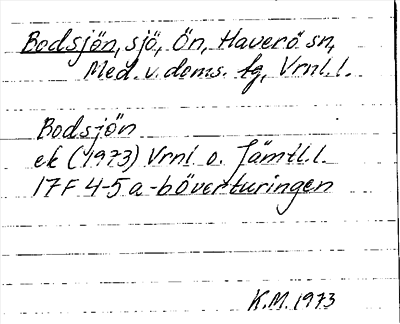 Bodsjön, sjö, Ön, Haverö sn,
Med. v. doms. fg, Vrnl. l.
Bodsjön
ek (1973) Vrnl o. Jämtl. l.
17F 4-5 a-b överturingen
K.M. 1973